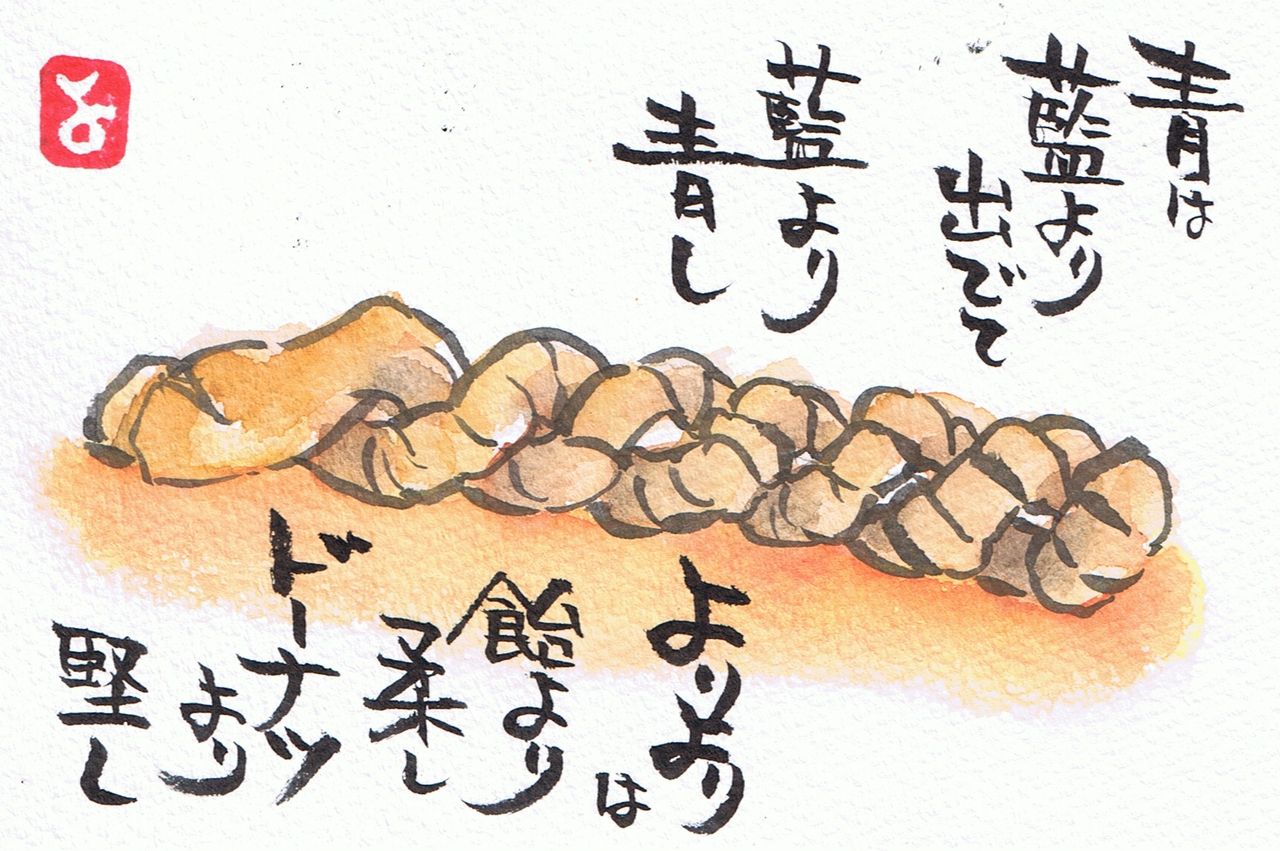 青は
藍より
出でて
藍より
青し
よりよりは
飴より
柔し
ドーナツ
より
堅し
と